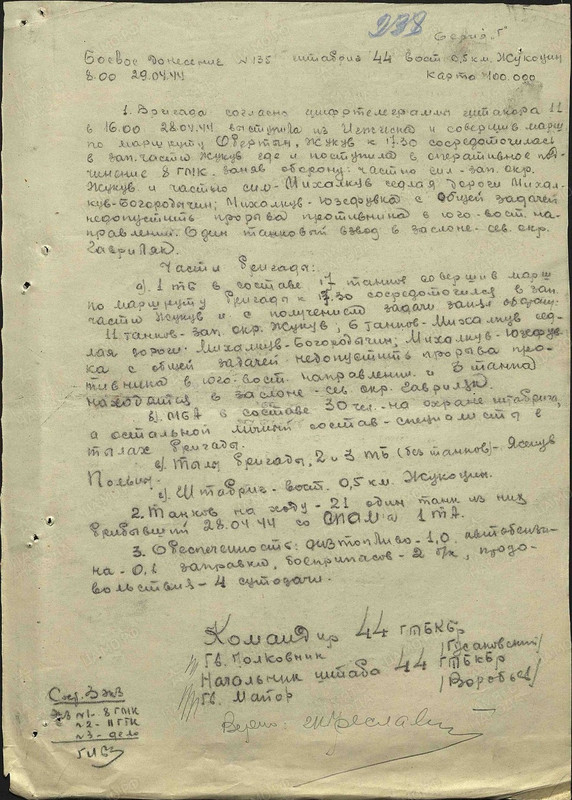 238
Серия "Г"
Боевое донесение №135 штабриг 44 вост. 0,5 км. Жукоцин
8.00 29.04.44 карта 100.000
1. Бригада согласно шифтелеграммы штакора 11
в 16.00 28.04.44 выступила из и совершив марш
по маршруту Обертын, Жукув к 17.30 сосредоточилась
в зап. части Жукув где и поступила в оперативное под-
чинение 8 ГМК. заняв оборону: частью сил - зап. окр.
Жукув и частью сил - Михалкув седлая дороги Михал-
кув-Богородычин; Михалкув-Юзефувка с общей задачей
недопустить прорыва противника в юго-вост. на-
правлении. Один танковый взвод в заслоне - сев. окр.
Гавриляк.
Части бригады:
а). 1 тб в составе 17 танков совершив марш
по маршруту бригады к 17.30 сосредоточился в зап.
части Жукув и с получением задачи занял оборону:
11 танков - зап. окр. Жукув; 6 танков - Михалкув сед-
лая дороги: Михалкув-Богородычин; Михалкув-Юзефув-
ка с общей задачей недопустить прорыва про-
тивника в юго-вост. направлении и 3 танка
находятся в заслоне - сев. окр. Гавриляк.
в). МБА в составе 30 чел. - на охране штабрига,
а остальной личный состав - специалисты в
тылах бригады.
с/. Тылы бригады, 2 и 3 тб (без танков) - Ясенув
Польны.
е/. Штабриг - вост. 0,5 км. Жукоцин.
2. Танков на ходу - 21 один танк из них
прибывший 28.04.44 со СПАМ 1 ТА.
3. Обеспеченность: дизтопливо - 1,0. автобензи-
на - 0,1 заправки, боеприпасов - 2 б/к, продо-
вольствия - 4 сутодачи.
Командир 44 ГТБКБр
Гв. Полковник /Гусаковский/
Начальник штаба 44 ГТБКБр
Гв. Майор /Воробьев/
Верно:
Сост. 3 экз
Экз №1 - 8 ГМК
№2 - 11 ГТК
№3 - дело